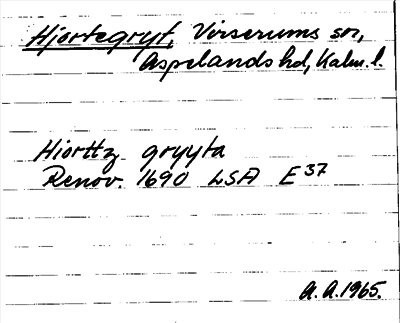 Hjortegryt, Virserums sn,
Aspelands hd, Kalm. l.
Hiorttz gryyta
Renov. 1690 LSA E 37
A. A. 1965.